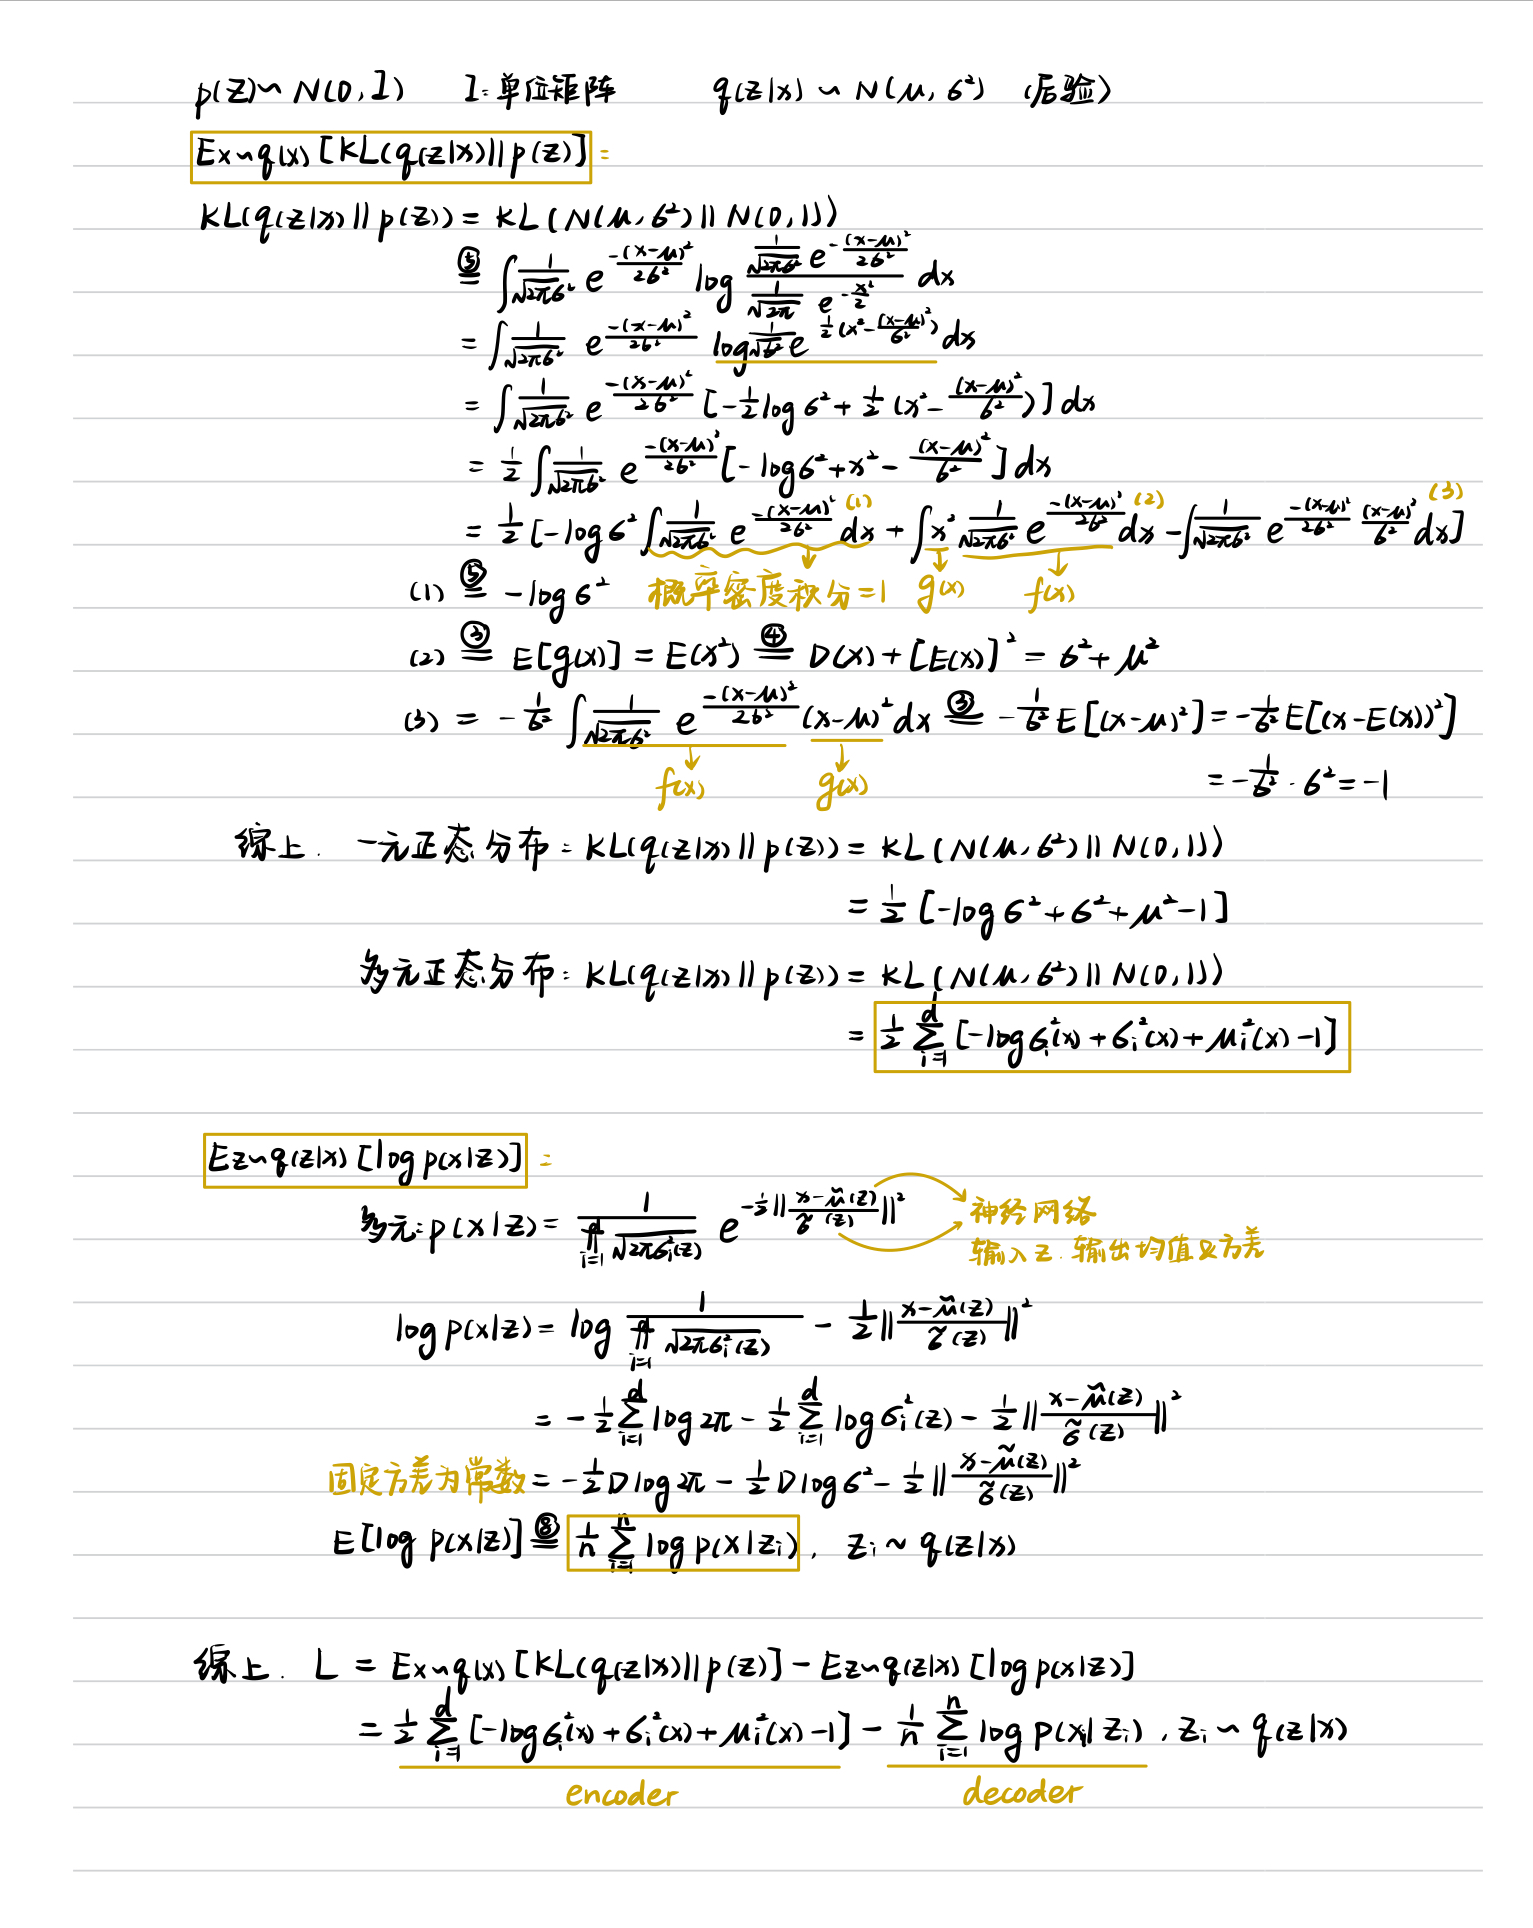 p(z)~N(0,I) I:单位矩阵 q(z|x)~N(μ,σ²) (后验)
Ex~q(x)[KL(q(z|x)||p(z)] =
KL(q(z|x)||p(z)) = KL(N(μ,σ²)||N(0,1))
⑤= ∫ 1/√(2πσ²) e^(-(x-μ)²/2σ²) log [1/√(2πσ²) e^(-(x-μ)²/2σ²)] / [1/√(2π) e^(-x²/2)] dx
= ∫ 1/√(2πσ²) e^(-(x-μ)²/2σ²) log 1/√(σ²) e^(½(x²-(x-μ)²/σ²)) dx
= ∫ 1/√(2πσ²) e^(-(x-μ)²/2σ²) [-½logσ²+½(x²-(x-μ)²/σ²)] dx
= ½ ∫ 1/√(2πσ²) e^(-(x-μ)²/2σ²) [-logσ²+x²-(x-μ)²/σ²] dx
= ½ [-logσ² ∫ 1/√(2πσ²) e^(-(x-μ)²/2σ²) dx (1) + ∫ x² 1/√(2πσ²) e^(-(x-μ)²/2σ²) dx (2) - ∫ 1/√(2πσ²) e^(-(x-μ)²/2σ²) (x-μ)²/σ² dx] (3)
(1) ⑤= -logσ² 概率密度积分=1 g(x) f(x)
(2) ③= E[g(x)] = E(x²) ④= D(x)+[E(x)]² = σ²+μ²
(3) = -1/σ² ∫ 1/√(2πσ²) e^(-(x-μ)²/2σ²) (x-μ)² dx ③= -1/σ² E[(x-μ)²] = -1/σ² E[(x-E(x))²]
f(x) g(x) = -1/σ² · σ² = -1
综上. 一元正态分布: KL(q(z|x)||p(z)) = KL(N(μ,σ²)||N(0,1))
= ½ [-logσ²+σ²+μ²-1]
多元正态分布: KL(q(z|x)||p(z)) = KL(N(μ,σ²)||N(0,1))
= ½ Σ_{i=1}^{d} [-logσᵢ²(x)+σᵢ²(x)+μᵢ²(x)-1]
Ez~q(z|x)[log p(x|z)] =
多元: p(x|z) = 1/(∏_{i=1}^{d} √(2πσᵢ²(z))) e^(-½||(x-μ̃(z))/σ̃(z)||²) 神经网络
输入z.输出均值及方差
log p(x|z) = log 1/(∏_{i=1}^{d} √(2πσᵢ²(z))) - ½||(x-μ̃(z))/σ̃(z)||²
= -½ Σ_{i=1}^{d} log2π - ½ Σ_{i=1}^{d} logσᵢ²(z) - ½||(x-μ̃(z))/σ̃(z)||²
固定方差为常数 = -½Dlog2π - ½Dlogσ² - ½||(x-μ̃(z))/σ̃(z)||²
E[log p(x|z)] ⑧= 1/n Σ_{i=1}^{n} log p(x|zᵢ), zᵢ~q(z|x)
综上. L = Ex~q(x)[KL(q(z|x)||p(z)] - Ez~q(z|x)[log p(x|z)]
= ½ Σ_{i=1}^{d} [-logσᵢ²(x)+σᵢ²(x)+μᵢ²(x)-1] - 1/n Σ_{i=1}^{n} log p(xᵢ|zᵢ), zᵢ~q(z|x)
encoder decoder